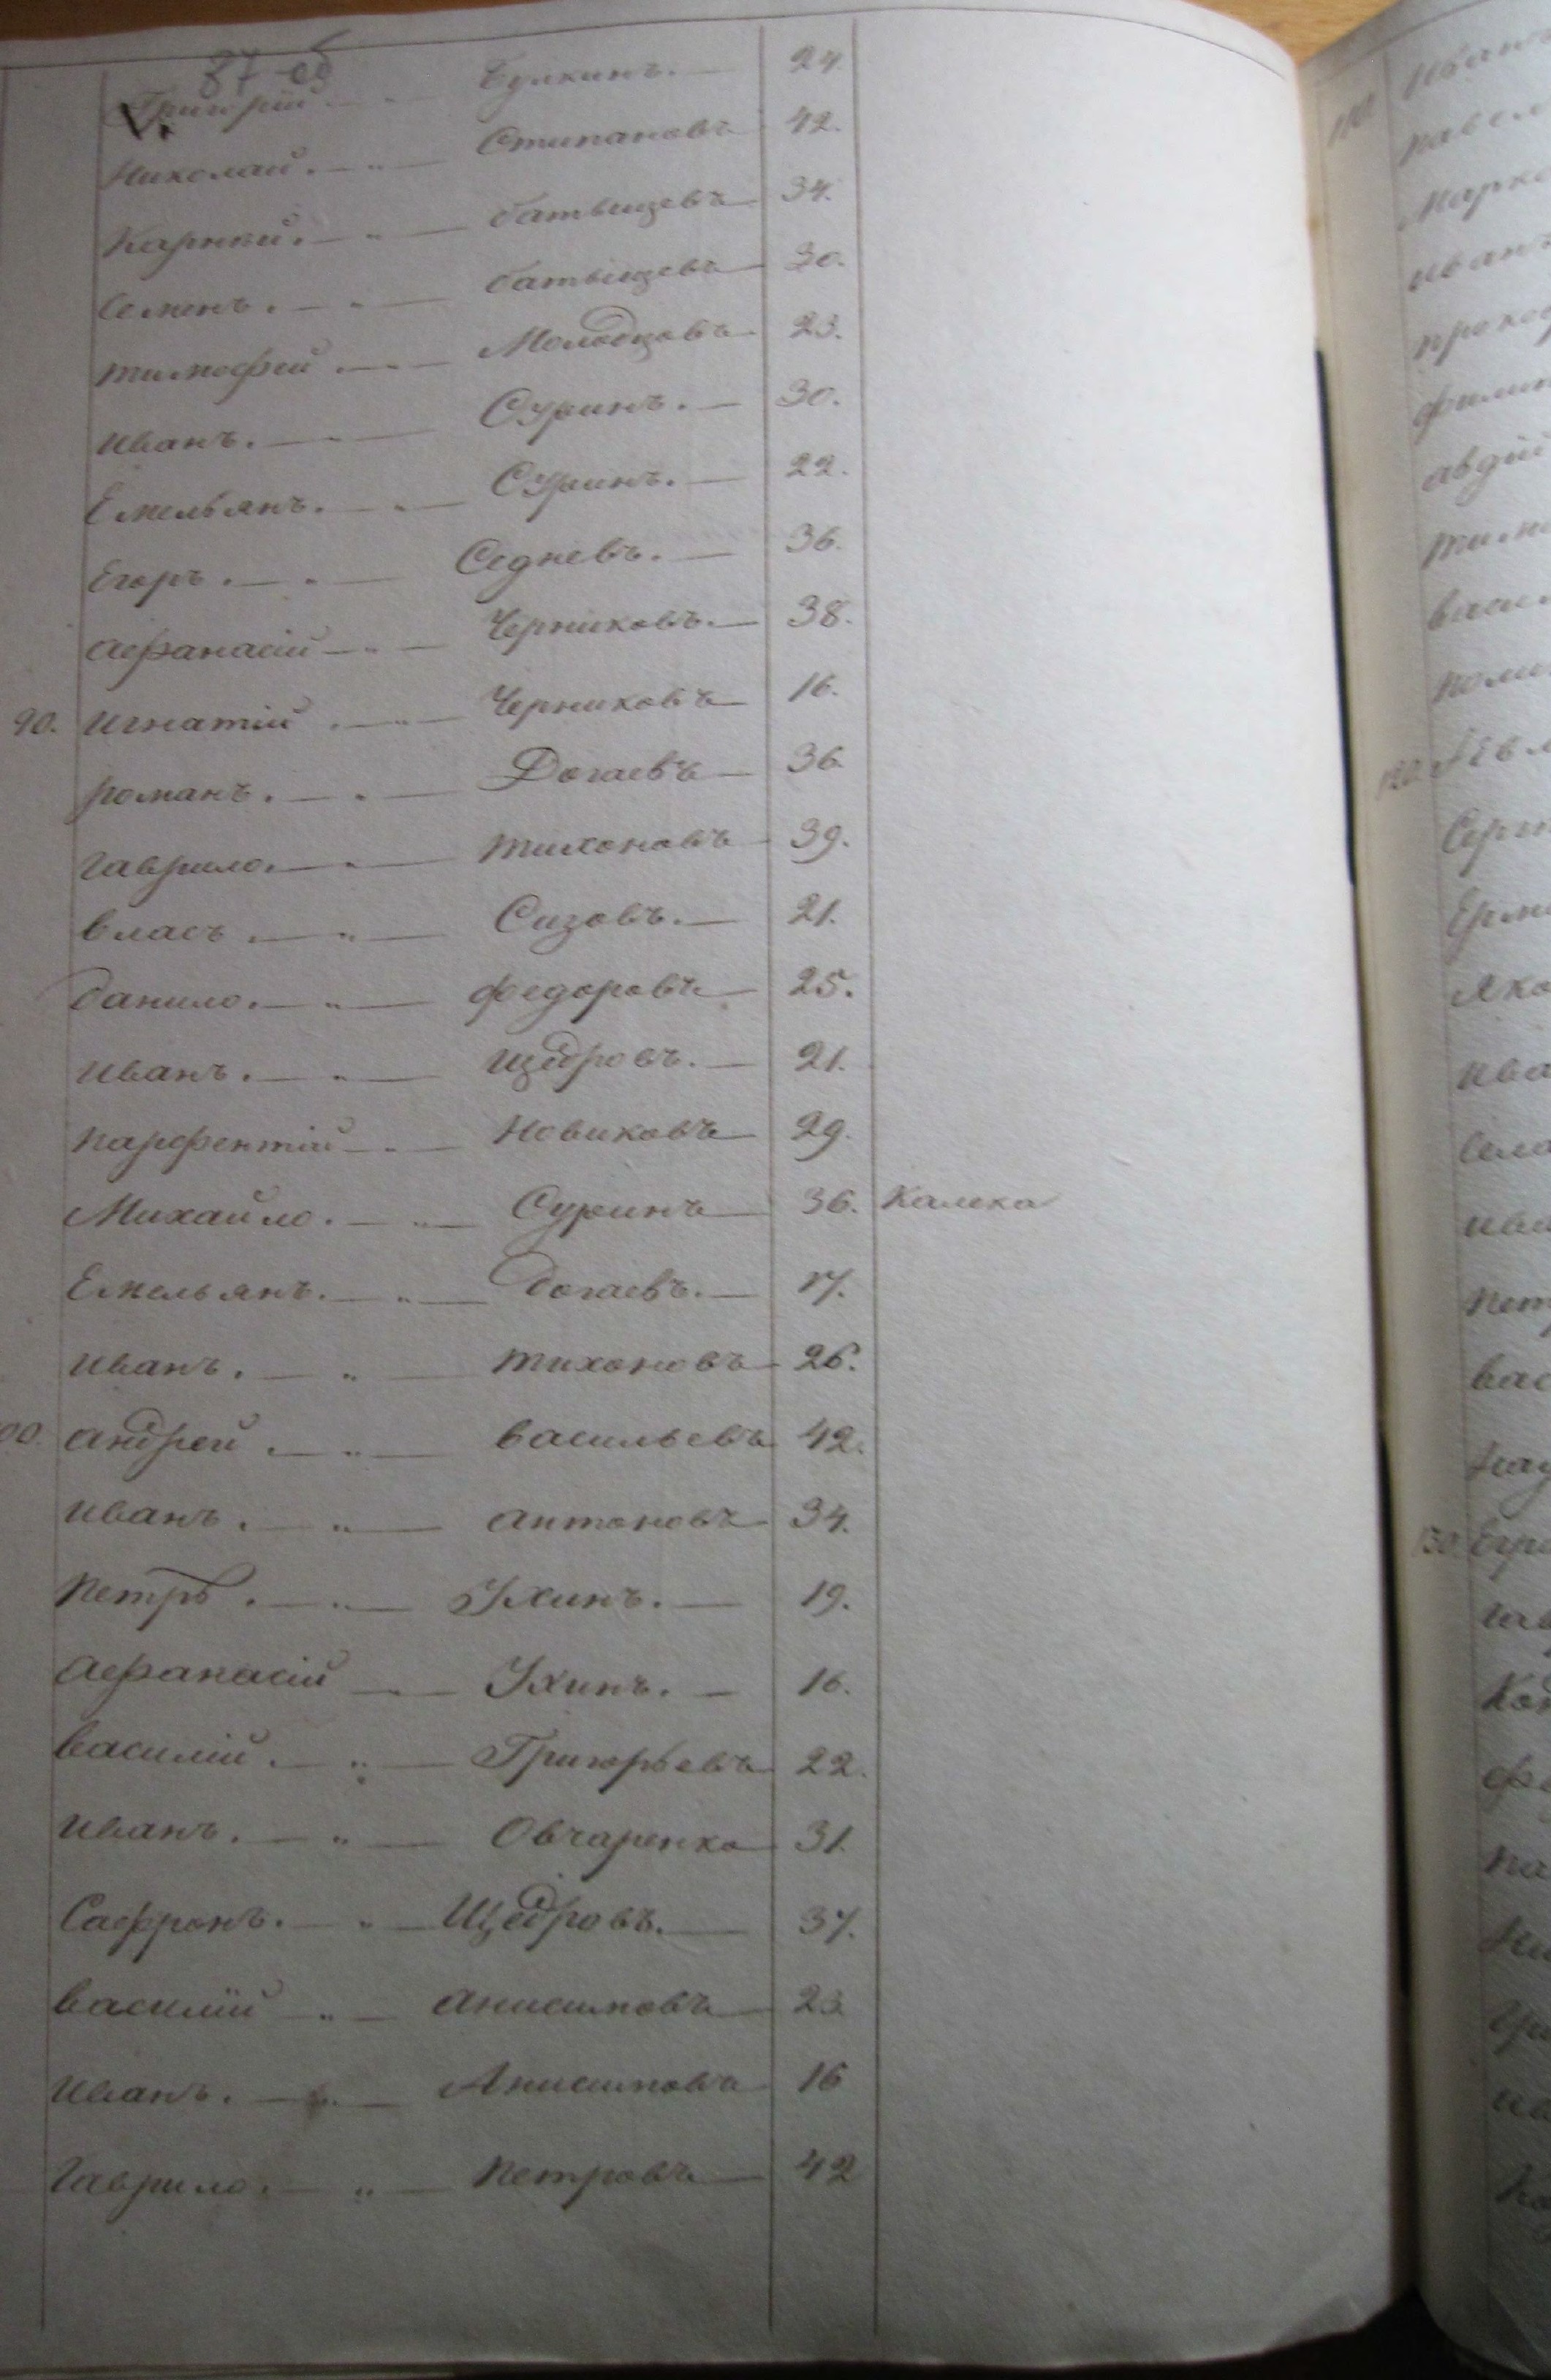 87 об
Григорій. Булкинъ. 24.
Николай. Стипановъ 42.
Карпъй. батыщевъ 34.
Семенъ. батыщевъ 30.
тимофей. Молодцовъ 23.
иванъ. Суринъ. 30.
Емельянъ. Суринъ. 22.
Егоръ. Седневъ. 36.
афанасій Черниковъ. 38.
90. игнатій Черниковъ 16.
романъ. Догаевъ 36.
гаврило. тихоновъ 39.
власъ. Сизовъ. 21.
данило. федоровъ 25.
иванъ. щедровъ. 21.
парфентій Новиковъ 29.
Михайло. Суринъ 36. Калека
Емельянъ. догаевъ. 17.
иванъ. тихоновъ 26.
00. андрей. васильевъ 42.
иванъ. антоновъ 34.
петръ. Ухинъ. 19.
афанасій Ухинъ. 16.
василій. Григорьевъ 22.
иванъ. Овчаренко 31.
Сафронъ. Щедровъ. 37.
василій анисимовъ 23
иванъ. Анисимовъ 16
гаврило. петровъ 42
110. иван
павел
Марк
иван
прокоф
филип
авдій
тим
васи
120.
Серг
Ерм
Яко
ива
ива
пет
вас
130.